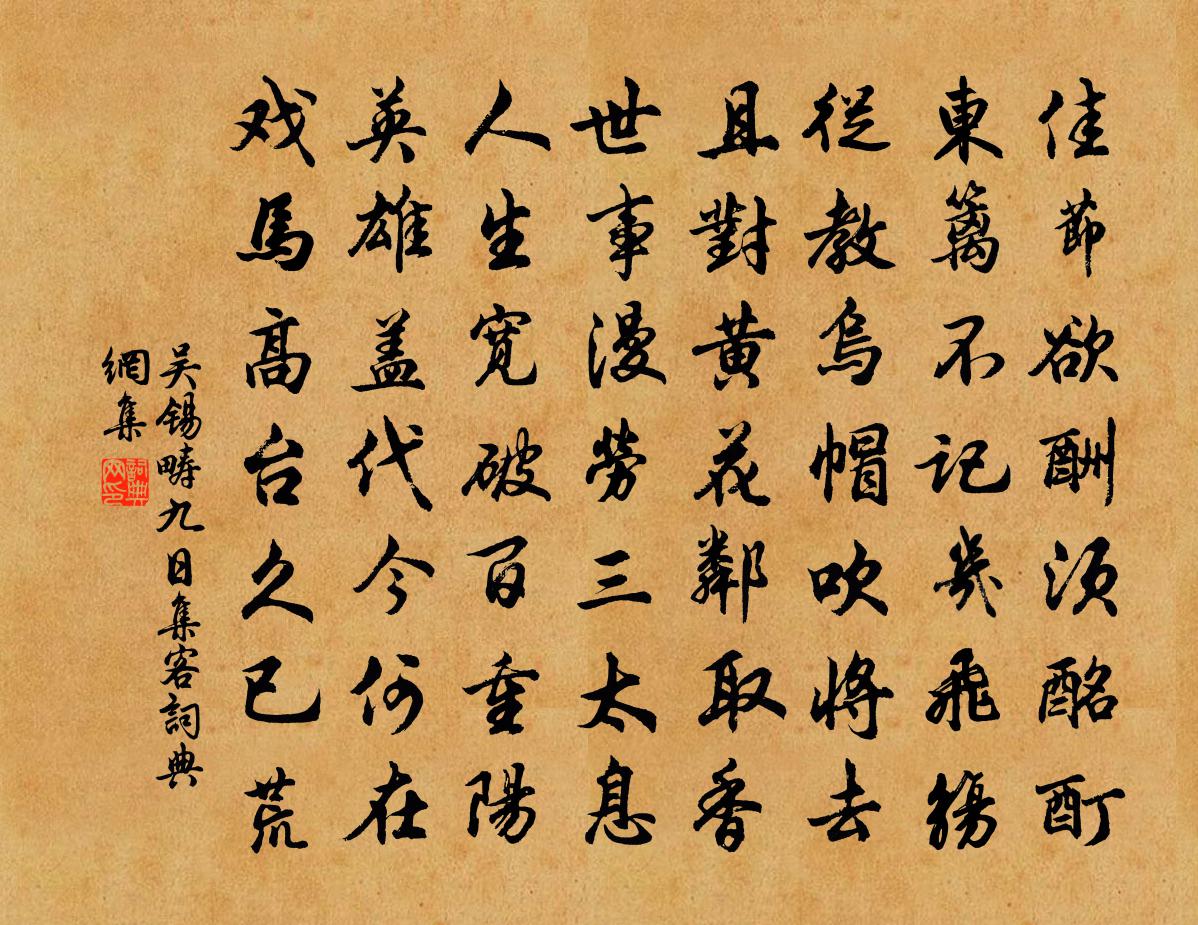 佳節欲酬須酩酊
東籬不記幾飛觴
從教烏帽吹將去
且對黃花鄰取香
世事漫勞三太息
人生宽破百重陽
英雄盖代今何在
戏馬高台久已荒
吴錫疇九日集客詞典
網集
詞典网印